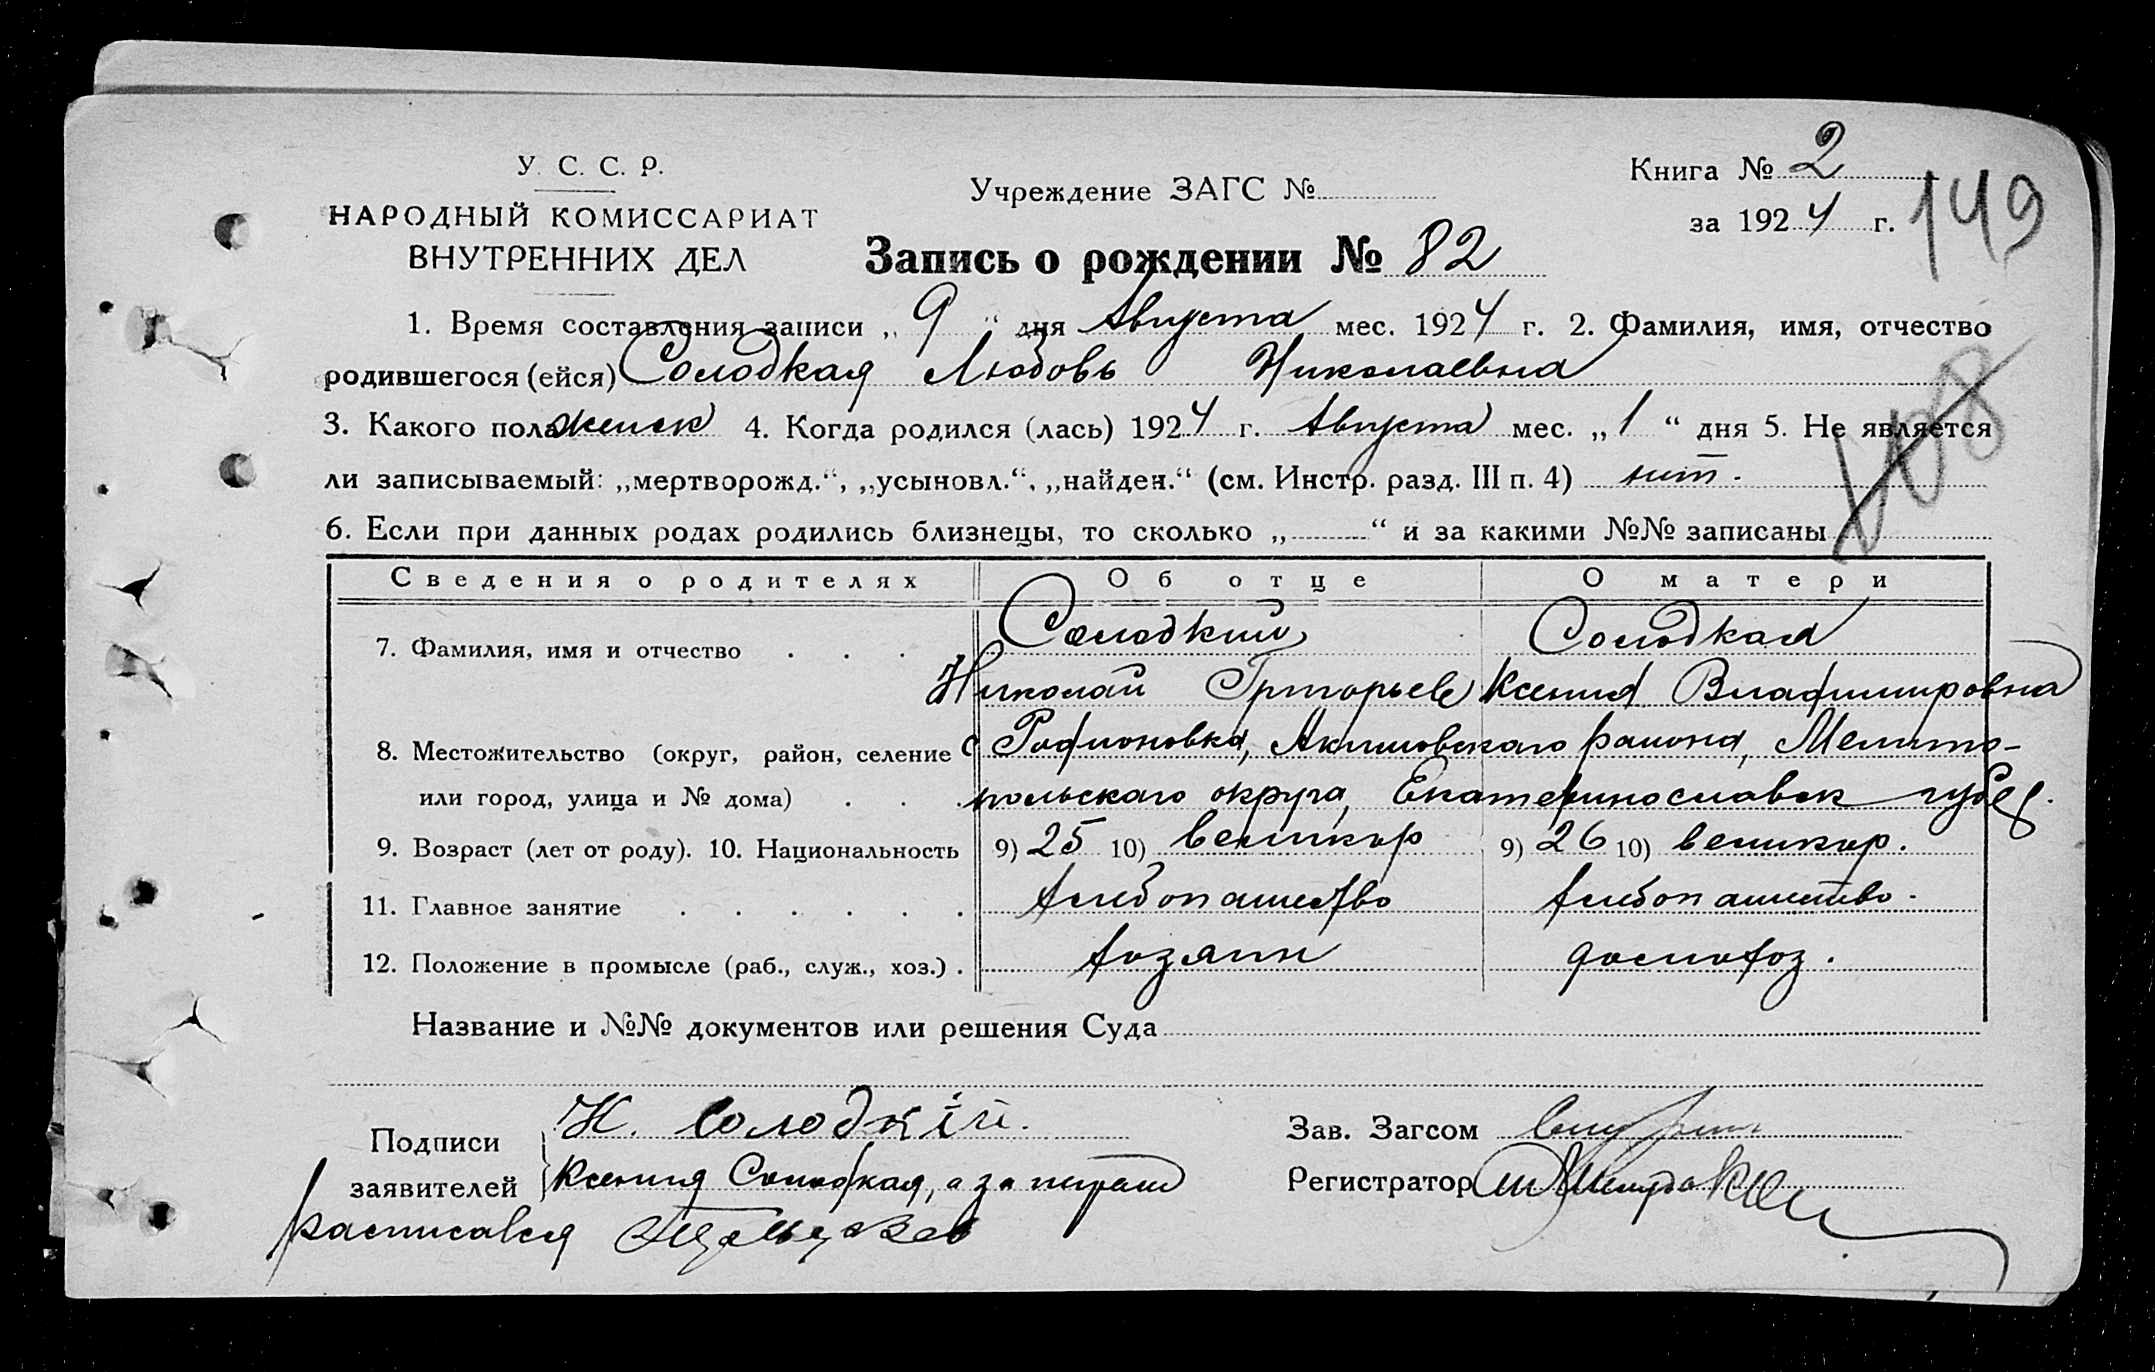 У. С. С. Р.
НАРОДНЫЙ КОМИССАРИАТ
ВНУТРЕННИХ ДЕЛ
Учреждение ЗАГС №
Книга № 2
за 1924 г.
149
Запись о рождении № 82
1. Время составления записи „ 9 “ дня Августа мес. 1924 г. 2. Фамилия, имя, отчество
родившегося (ейся) Солодкая Любовь Николаевна
3. Какого пола женск 4. Когда родился (лась) 1924 г. Августа мес. „ 1 “ дня 5. Не является
ли записываемый: „мертворожд.“, „усыновл.“, „найден.“ (см. Инстр. разд. III п. 4) нет.
108
6. Если при данных родах родились близнецы, то сколько „ “ и за какими №№ записаны
Сведения о родителях Об отце О матери
7. Фамилия, имя и отчество . . . Солодкий Солодкая
Николай Григорьев Ксения Владимировна
8. Местожительство (округ, район, селение с Родионовка, Акимовского района, Мелито-
или город, улица и № дома) . . . польского округа, Екатеринославск губер.
9. Возраст (лет от роду). 10. Национальность 9) 25 10) великор 9) 26 10) великор.
11. Главное занятие . . . . . . хлебопашество хлебопашество.
12. Положение в промысле (раб., служ., хоз.) . хозяин домохоз.
Название и №№ документов или решения Суда
Подписи заявителей
Н. Солодкій.
Ксения Солодкая, а за неграм
расписався
Зав. Загсом
Регистратор